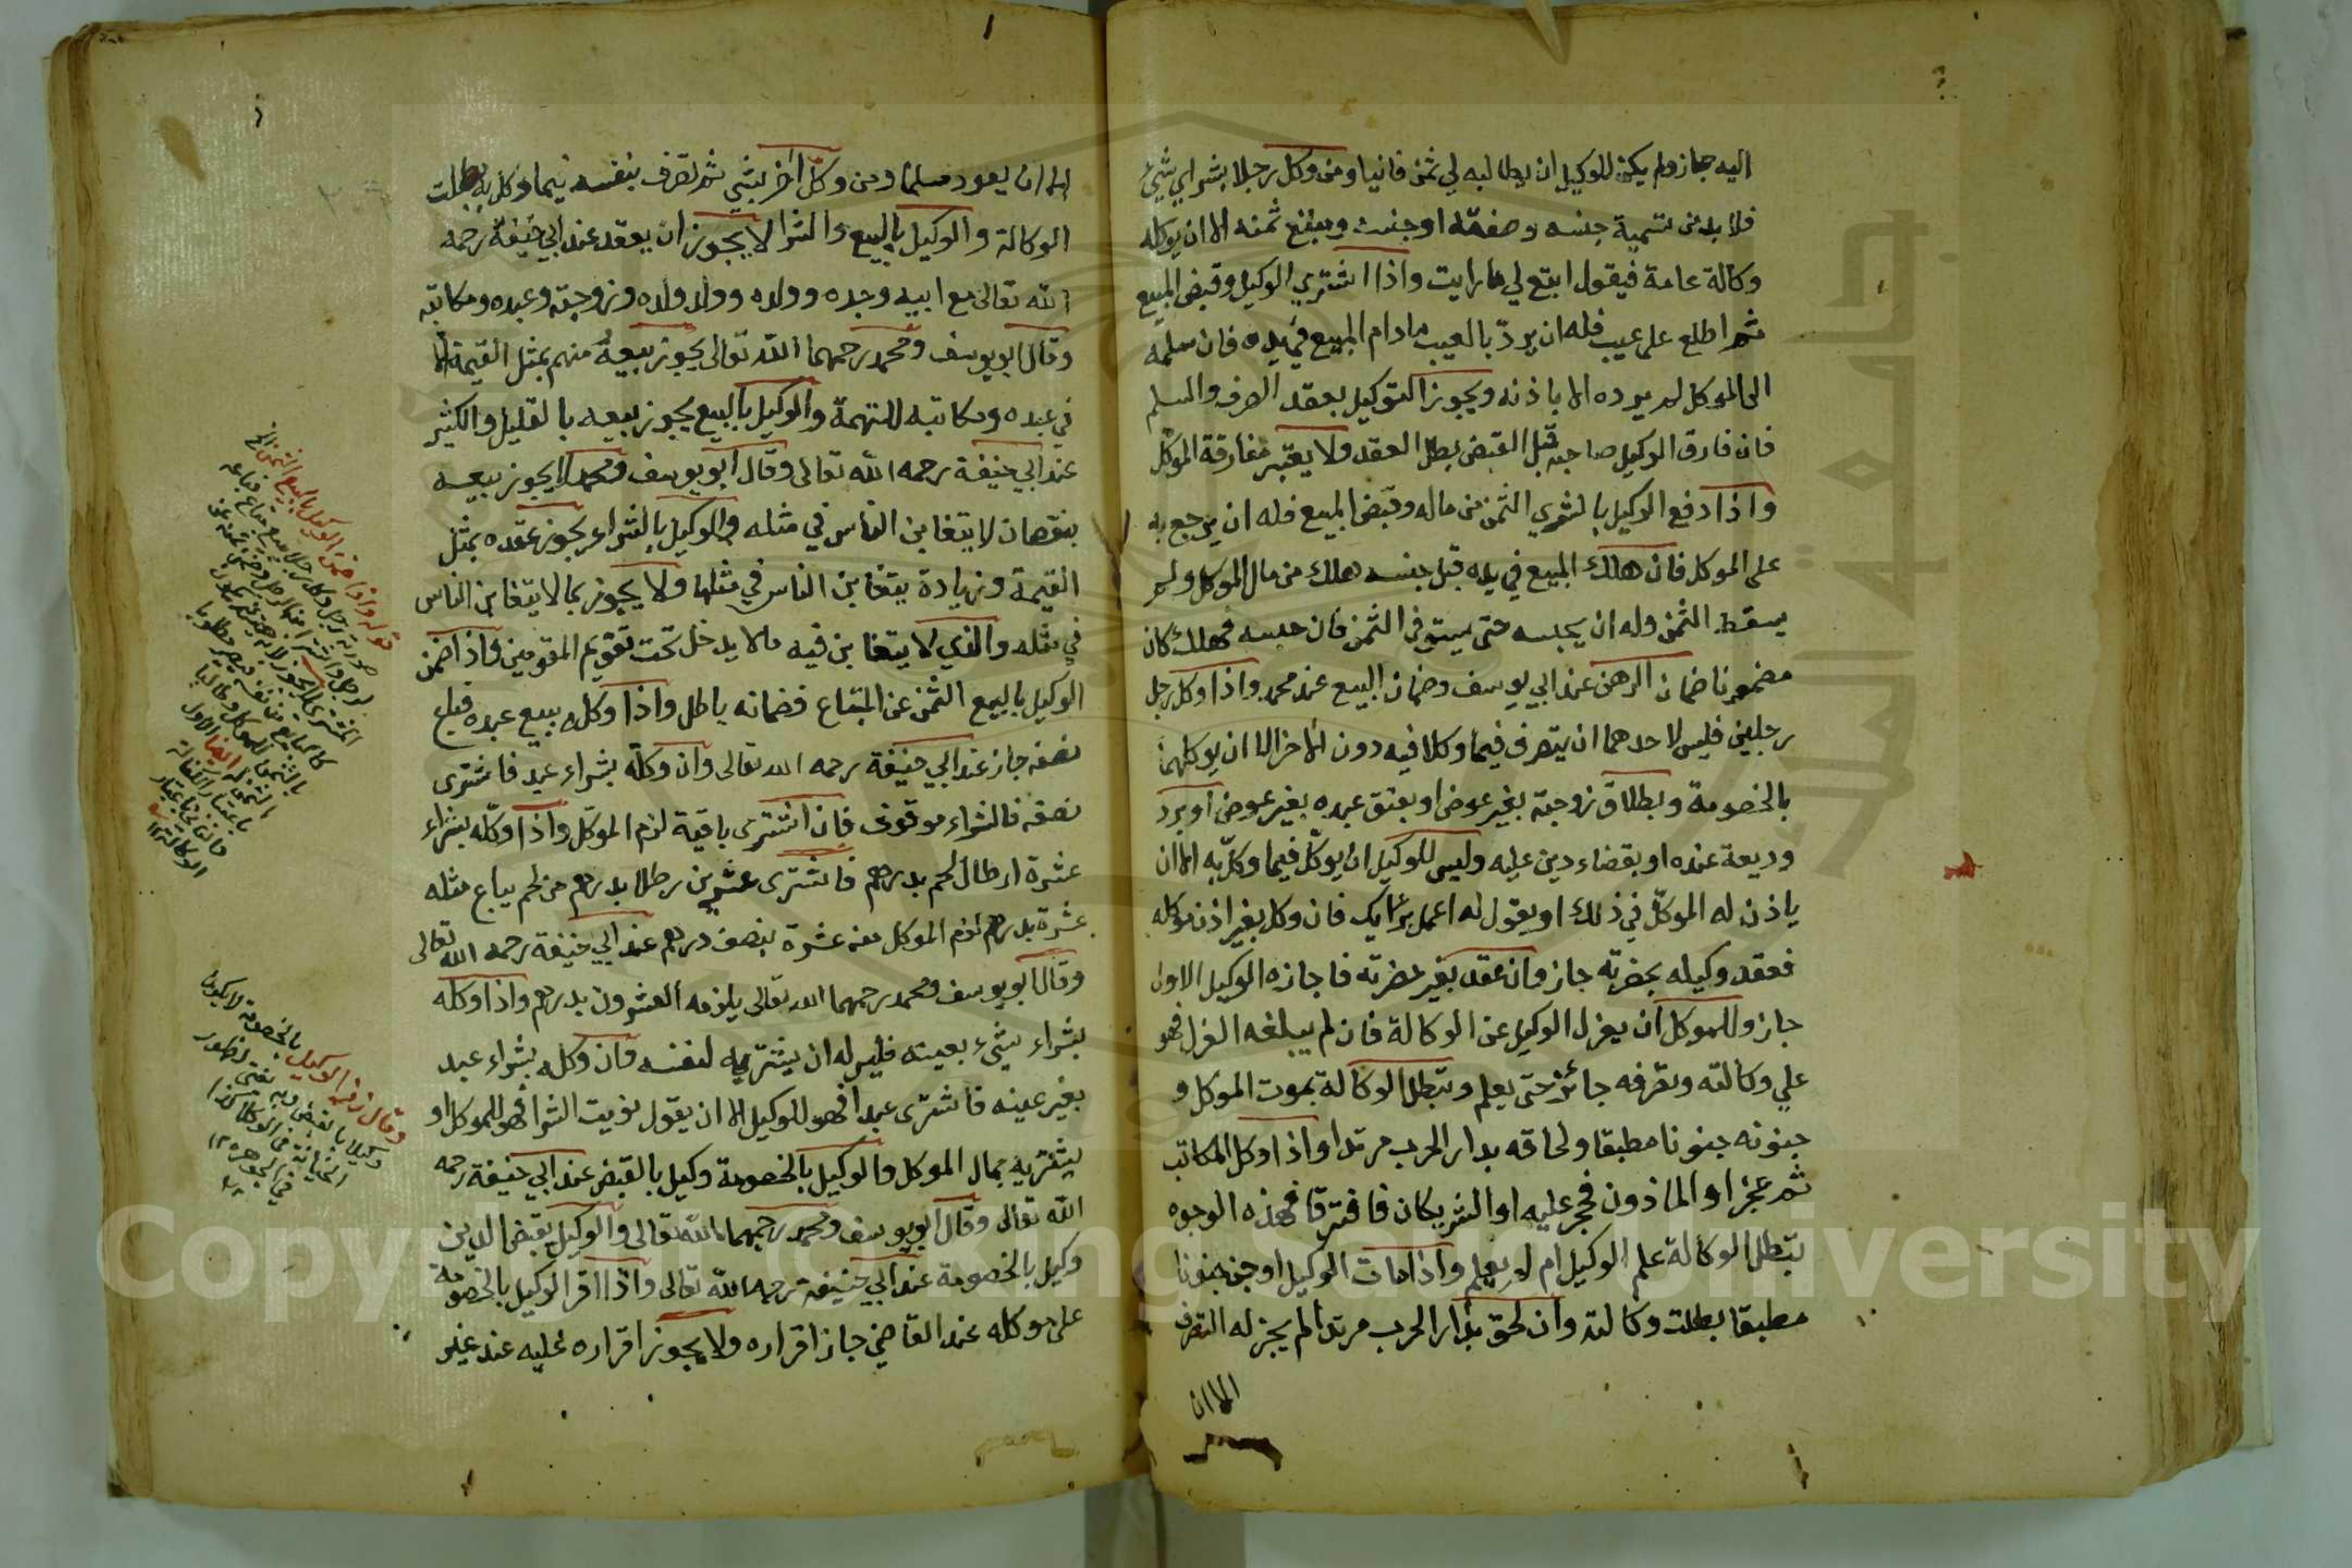 اليه جاز ولم يكن للوكيل ان يطالبه لي ثمن ثانيا ومن وكل رجلا بشراي شيئ
فلا بد من تسمية جنسه وصفته او جنسه ومبلغ ثمنه الا ان يوكله
وكالة عامة فيقول ابتع لي ما رايت واذا اشتري الوكيل وقبض المبيع
ثم اطلع على عيب فله ان يردّ بالعيب مادام المبيع في يده فان سلمه
الى الموكل لم يرده الا باذنه ويجوز التوكيل بعقد الصرف والسلم
فان فارق الوكيل صاحبه قبل القبض بطل العقد ولا يعتبر مفارقة الموكل
واذا دفع الوكيل بالشري الثمن من ماله وقبض المبيع فله ان يرجع به
على الموكل فان هلك المبيع في يده قبل حبسه هلك من مال الموكل ولم
يسقط الثمن وله ان يحبسه حتى يستوفي الثمن فان حبسه فهلك كان
مضمونا ضمان الرهن عند ابي يوسف وضمان البيع عند محمد واذا وكل رجل
رجلين فليس لاحدهما ان يتصرف فيما وكلا فيه دون الاخر الا ان يوكلهما
بالخصومة وبطلاق زوجته بغير عوض او بعتق عبده بغير عوض او برد
وديعة عنده او بقضاء دين عليه وليس للوكيل ان يوكل فيما وكل به الا ان
ياذن له الموكل في ذلك او يقول له اعمل برايك فان وكل بغير اذن موكله
فعقد وكيله بحضرته جاز وان عقد بغير حضرته فاجازه الوكيل الاول
جاز وللموكل ان يعزل الوكيل عن الوكالة فان لم يبلغه العزل فهو
علي وكالته وتصرفه جائز حتى يعلم وتبطل الوكالة بموت الموكل و
جنونه جنونا مطبقا ولحاقه بدار الحرب مرتدا واذا وكل المكاتب
ثم عجز او الماذون فحجر عليه او الشريكان فافترقا فهذه الوجوه
تبطل الوكالة علم الوكيل ام لم يعلم واذا مات الوكيل او جن جنونا
مطبقا بطلت وكالته وان لحق بدار الحرب مرتدا لم يجز له التصرف
الا ان
الا ان يعود مسلما ومن وكل اخر بشي ثم تصرف بنفسه فيما وكل به بطلت
الوكالة والوكيل بالبيع والشرا لا يجوز ان يعقد عند ابي حنيفة رحمه
الله تعالى مع ابيه وجده وولده وولد ولده وزوجته وعبده ومكاتبه
وقال ابو يوسف ومحمد رحمهما الله تعالى يجوز بيعه منهم بمثل القيمة الا
في عبده ومكاتبه للتهمة والوكيل بالبيع يجوز بيعه بالقليل والكثير
عند ابي حنيفة رحمه الله تعالى وقال ابو يوسف ومحمد لا يجوز بيعه
بنقصان لا يتغابن الناس في مثله والوكيل بالشراء يجوز عقده بمثل
القيمة وزيادة يتغابن الناس في مثلها ولا يجوز بما لا يتغابن الناس
في مثله والذي لا يتغابن فيه ما لا يدخل تحت تقويم المقومين واذا ضمن
الوكيل بالبيع الثمن عن المبتاع فضمانه باطل واذا وكله ببيع عبده فباع
نصفه جاز عند ابي حنيفة رحمه الله تعالى وان وكله بشراء عبد فاشترى
نصفه فالشراء موقوف فان اشترى باقيه لزم الموكل واذا وكله بشراء
عشرة ارطال لحم بدرهم فاشترى عشرين رطلا بدرهم من لحم يباع مثله
عشرة بدرهم لزم الموكل منه عشرة بنصف درهم عند ابي حنيفة رحمه الله تعالى
وقال ابو يوسف ومحمد رحمهما الله تعالى يلزمه العشرون بدرهم واذا وكله
بشراء شيء بعينه فليس له ان يشتريه لنفسه وان وكله بشراء عبد
بغير عينه فاشترى عبدا فهو للوكيل الا ان يقول نويت الشرا فهو للموكل او
يشتريه بمال الموكل والوكيل بالخصومة وكيل بالقبض عند ابي حنيفة رحمه
الله تعالى وقال ابو يوسف ومحمد رحمهما الله تعالى والوكيل بقبض الدين
وكيل بالخصومة عند ابي حنيفة رحمه الله تعالى واذا اقر الوكيل بالخصومة
على موكله عند القاضي جاز اقراره ولا يجوز اقراره عليه عند غير
قوله واذا ضمن الوكيل بالبيع الثمن الخ
وقال زفر الوكيل بالخصومة لا يكون
وكيلا بالقبض وبه يفتى لظهور
الخيانة في الوكلا كذا
في الجوهره ١٢
Copyright © King Saud University